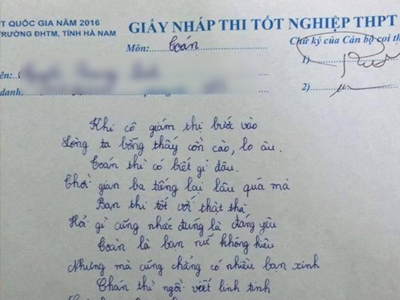 T QUỐC GIA NĂM 2016
TRƯỜNG ĐHTM, TỈNH HÀ NAM
GIẤY NHÁP THI TỐT NGHIỆP THPT
Môn: Toán
Chữ ký của Cán bộ coi th
1)
2)
ên:
danh,
Khi cô giám thị bước vào
Lòng ta bỗng thấy cồn cào, lo âu.
Toán thì có biết gì đâu.
Thời gian ba tiếng lại lâu quá mà
Bạn thi tốt với thật thà
Hỏi gì cũng nhắc đúng là đáng yêu
Toàn là bạn nữ không kiêu
Nhưng mà cũng chẳng có nhiều bạn xinh
Chán thì ngồi viết linh tinh